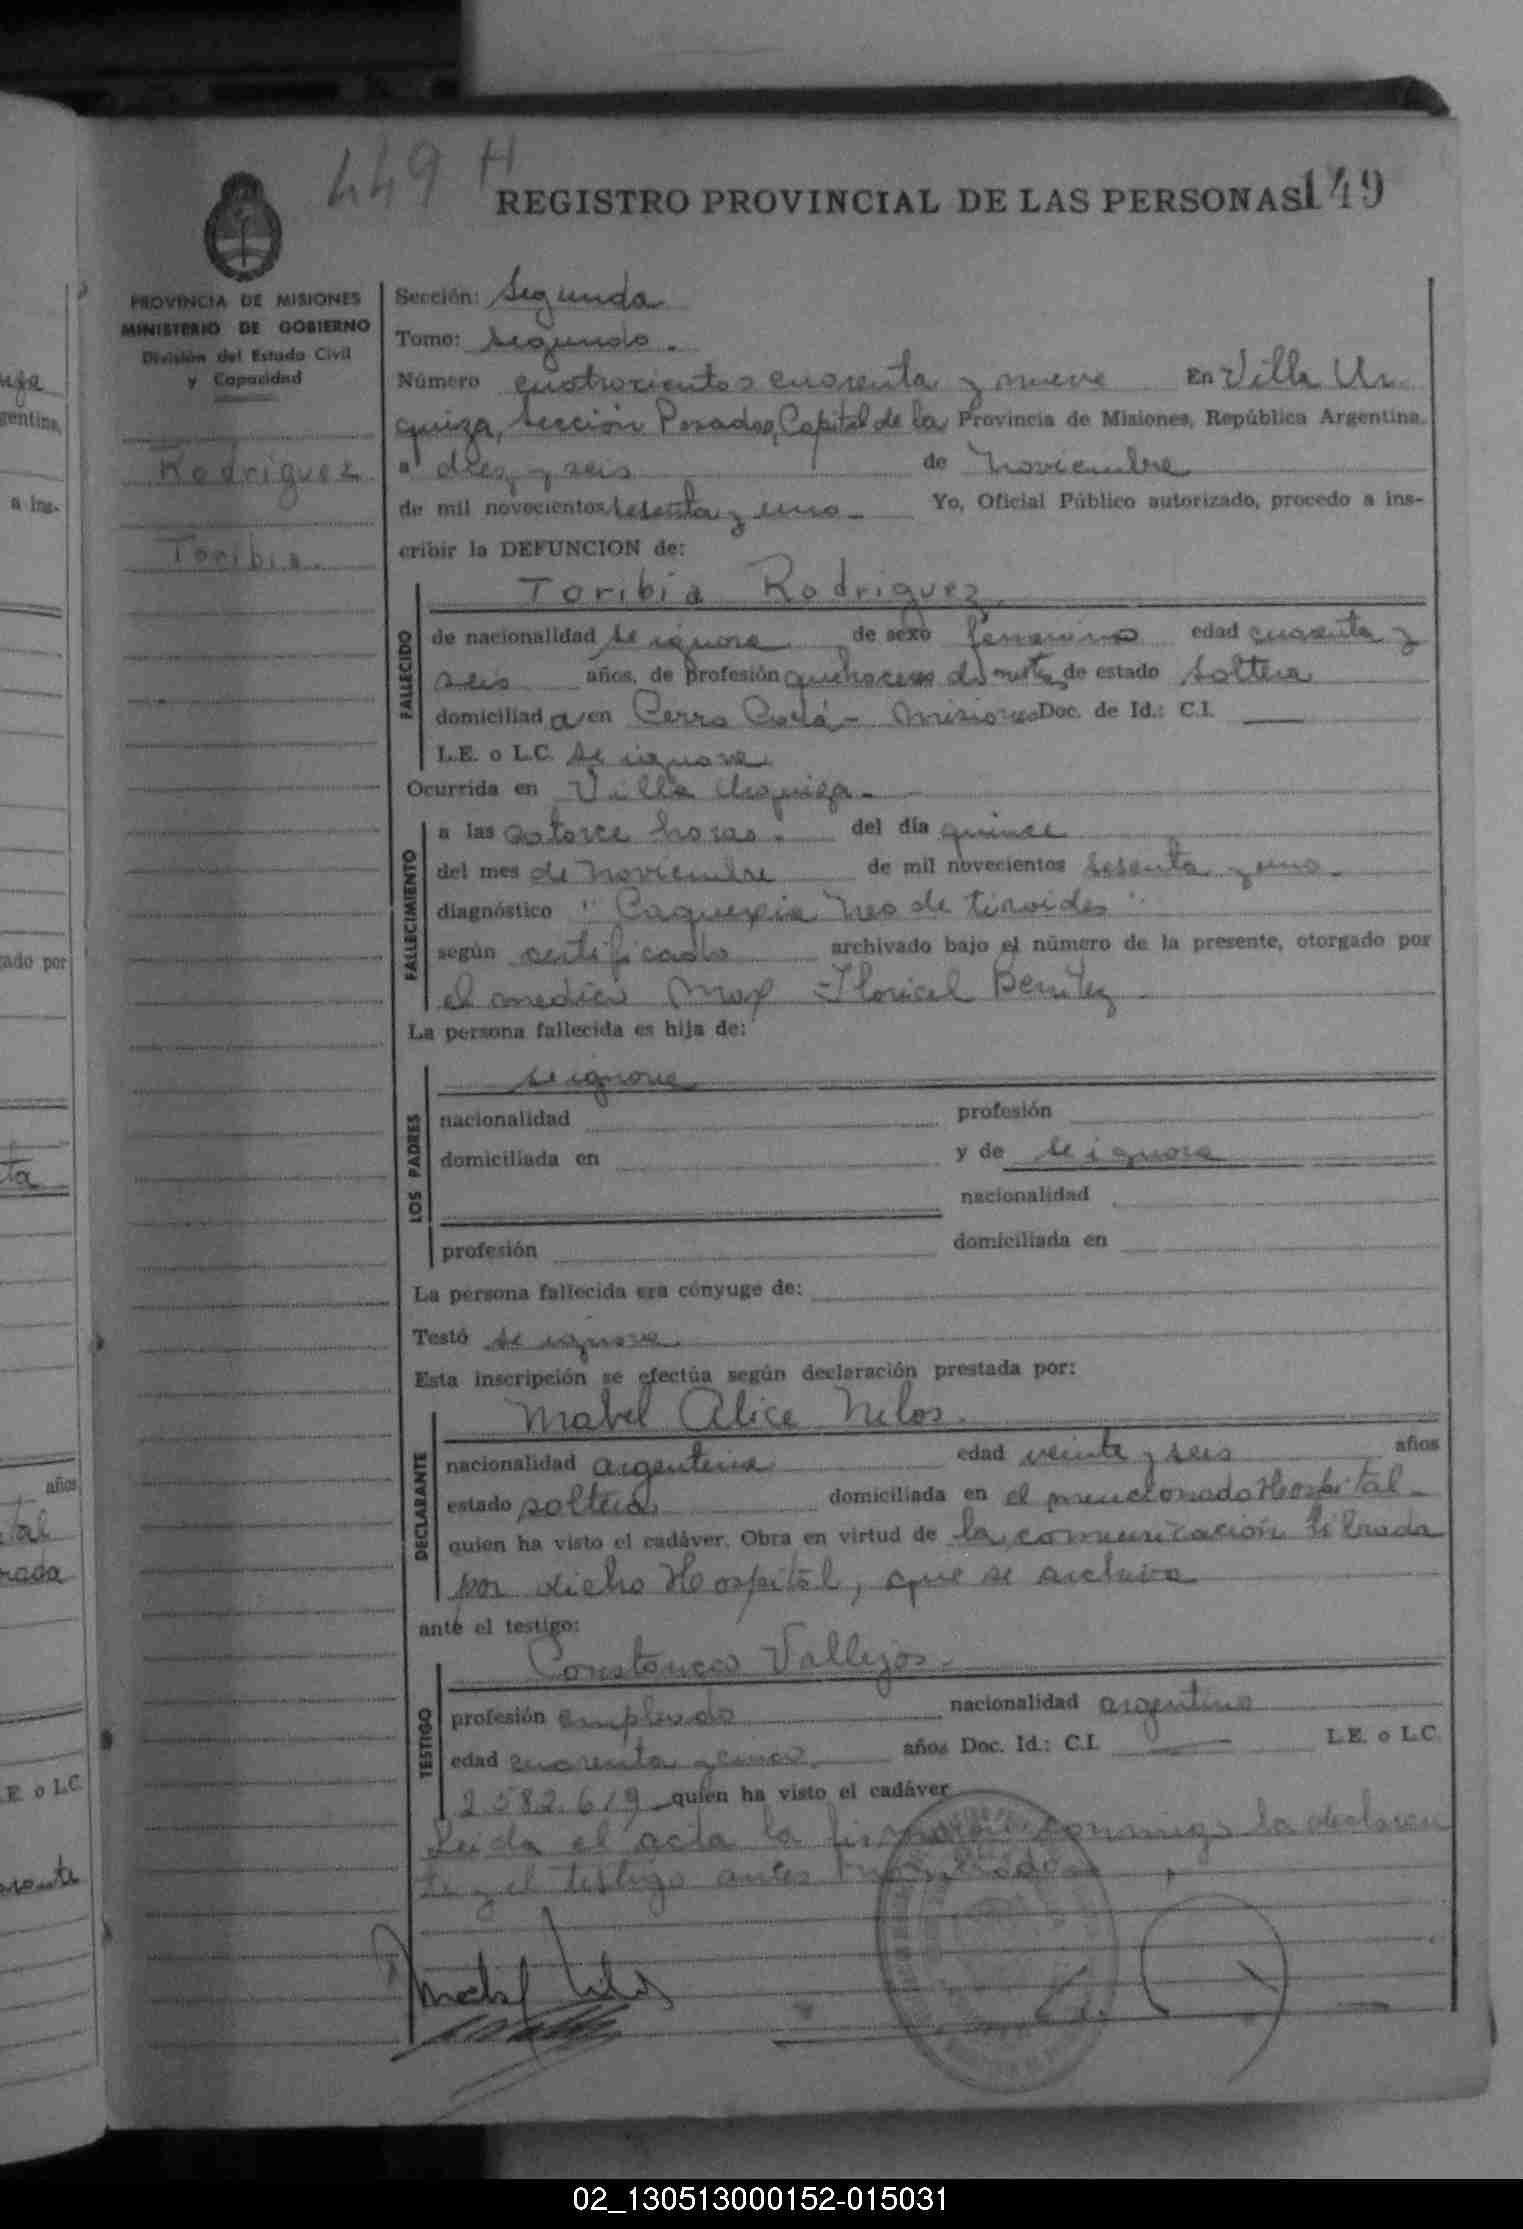 449 H
REGISTRO PROVINCIAL DE LAS PERSONAS 149
PROVINCIA DE MISIONES
MINISTERIO DE GOBIERNO
División del Estado Civil
y Capacidad
Rodriguez
Toribia.
Sección: Segunda
Tomo: segundo.
Número cuatrocientos cuarenta y nueve En Villa Ur
quiza, Sección Posadas, Capital de la Provincia de Misiones, República Argentina.
a diez y seis de noviembre
de mil novecientos sesenta y uno. Yo, Oficial Público autorizado, procedo a ins-
cribir la DEFUNCION de:
Toribia Rodriguez
FALLECIDO
de nacionalidad se ignora de sexo femenino edad cuarenta y
seis años, de profesión quehaceres de estado soltera
domiciliad a en Cerro Corá - Misiones Doc. de Id.: C.I. —
L.E. o L.C. se ignora
Ocurrida en Villa Urquiza.
FALLECIMIENTO
a las catorce horas. del día quince
del mes de noviembre de mil novecientos sesenta y uno.
diagnóstico "Caquexia Neo de tiroides"
según certificado archivado bajo el número de la presente, otorgado por
el medico Max Floricel Benitez
La persona fallecida es hija de:
LOS PADRES
se ignora
nacionalidad profesión
domiciliada en y de se ignora
nacionalidad
profesión domiciliada en
La persona fallecida era cónyuge de:
Testó se ignora.
Esta inscripción se efectúa según declaración prestada por:
DECLARANTE
Mabel Alice Nelos.
nacionalidad argentina edad veinte y seis años
estado soltera domiciliada en el mencionado Hospital.
quien ha visto el cadáver. Obra en virtud de la comunicación librada
por dicho Hospital, que se archiva
ante el testigo:
TESTIGO
Constancio Vallejos.
profesión empleado nacionalidad argentino
edad cuarenta y cinco. años Doc. Id.: C.I. — L.E. o L.C.
2.582.619 quien ha visto el cadáver
Leida el acta la firmaron conmigo la declaran
te y el testigo antes nombrados
uge
gentina,
a ins-
gado por
ta
años
tal
rada
.E. o L.C.
02_130513000152-015031